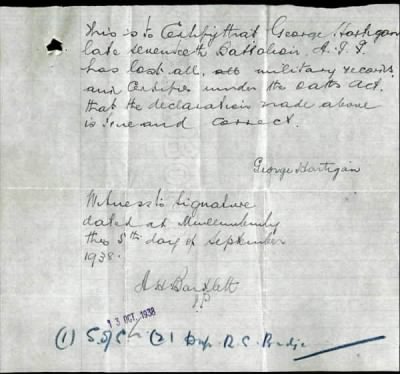 This is to Certify that George Hartigan
late seventeeth Battalion, A.I.F.
has lost all, all military records
and Certifies under the oaths Act,
that the declaration made above
is true and correct.
George Hartigan
Witness to Signature
dated at Mullumbimby
this 5th day of September
1938.
A H Bartlett
J.P.
13 OCT. 1938
(1) S.S/C (2) R.C.